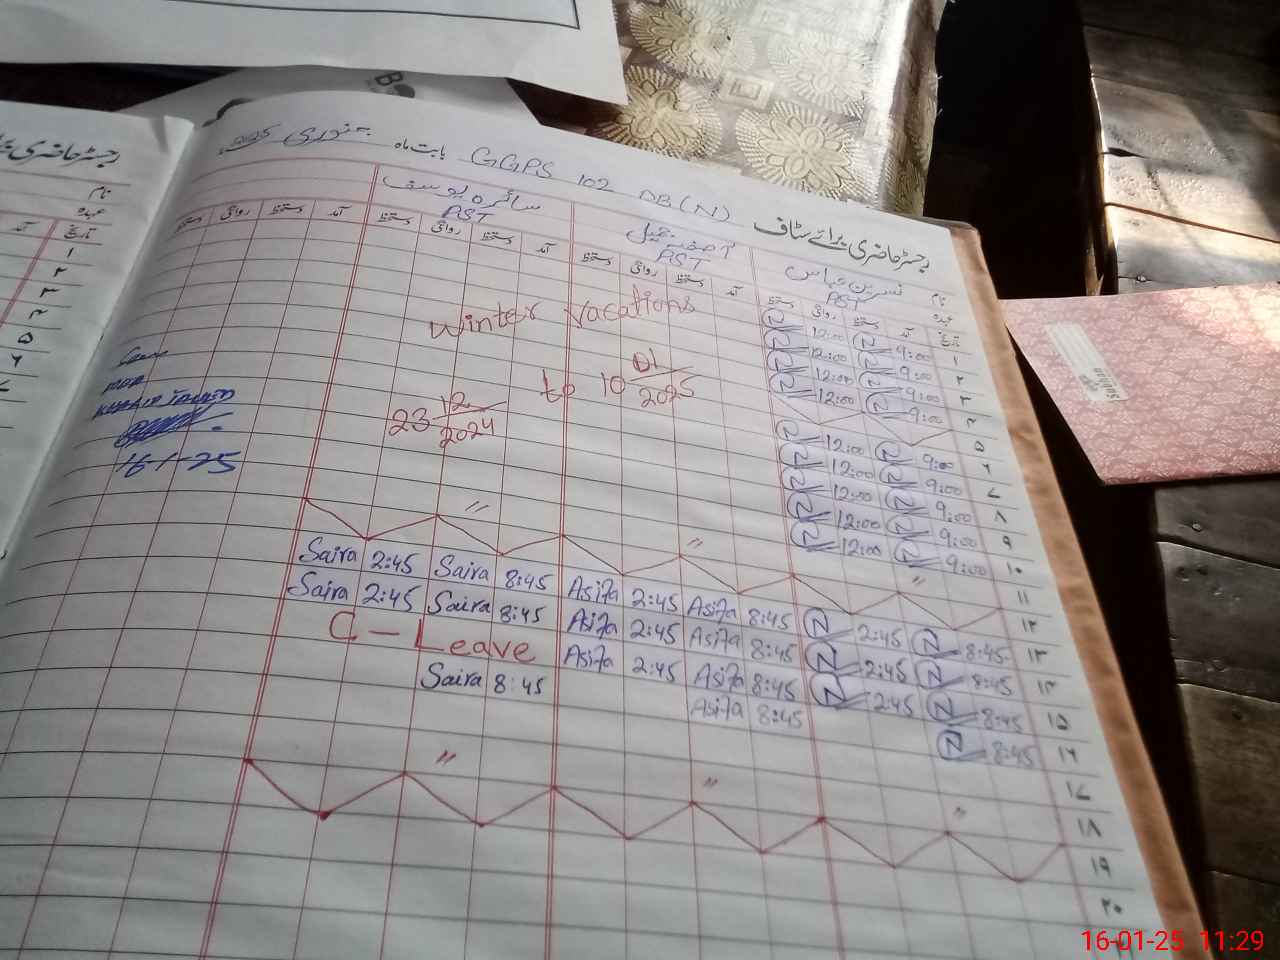 رجسٹر حاضری برائے سٹاف GGPS 102 DB(N) بابت ماہ جنوری 2025
نام نسرین عباس آصفہ جمیل سائرہ یوسف
عہدہ PST PST PST
تاریخ آمد دستخط روانگی دستخط آمد دستخط روانگی دستخط آمد دستخط روانگی دستخط آمد دستخط روانگی دستخط
۱ 9:00 N 12:00 N
۲ 9:00 N 12:00 N
۳ 9:00 N 12:00 N
۴ 9:00 N 12:00 N
۵
۶ 9:00 N 12:00 N
۷ 9:00 N 12:00 N
۸ 9:00 N 12:00 N
۹ 9:00 N 12:00 N
۱۰ 9:00 N 12:00 N
Winter vacations
23 12/2024 to 10 01/2025
۱۱ " " "
۱۲
۱۳ 8:45 N 2:45 N 8:45 Asifa 2:45 Asifa 8:45 Saira 2:45 Saira
۱۴ 8:45 N 2:45 N 8:45 Asifa 2:45 Asifa 8:45 Saira 2:45 Saira
۱۵ 8:45 N 2:45 N 8:45 Asifa 2:45 Asifa C-Leave
۱۶ 8:45 N 8:45 Asifa 8:45 Saira
۱۷
۱۸ " " "
۱۹
۲۰
16-1-25
رجسٹر حاضری
نام
عہدہ
تاریخ آمد
۱
۲
۳
۴
۵
۶
۷
B
16-01-25 11:29